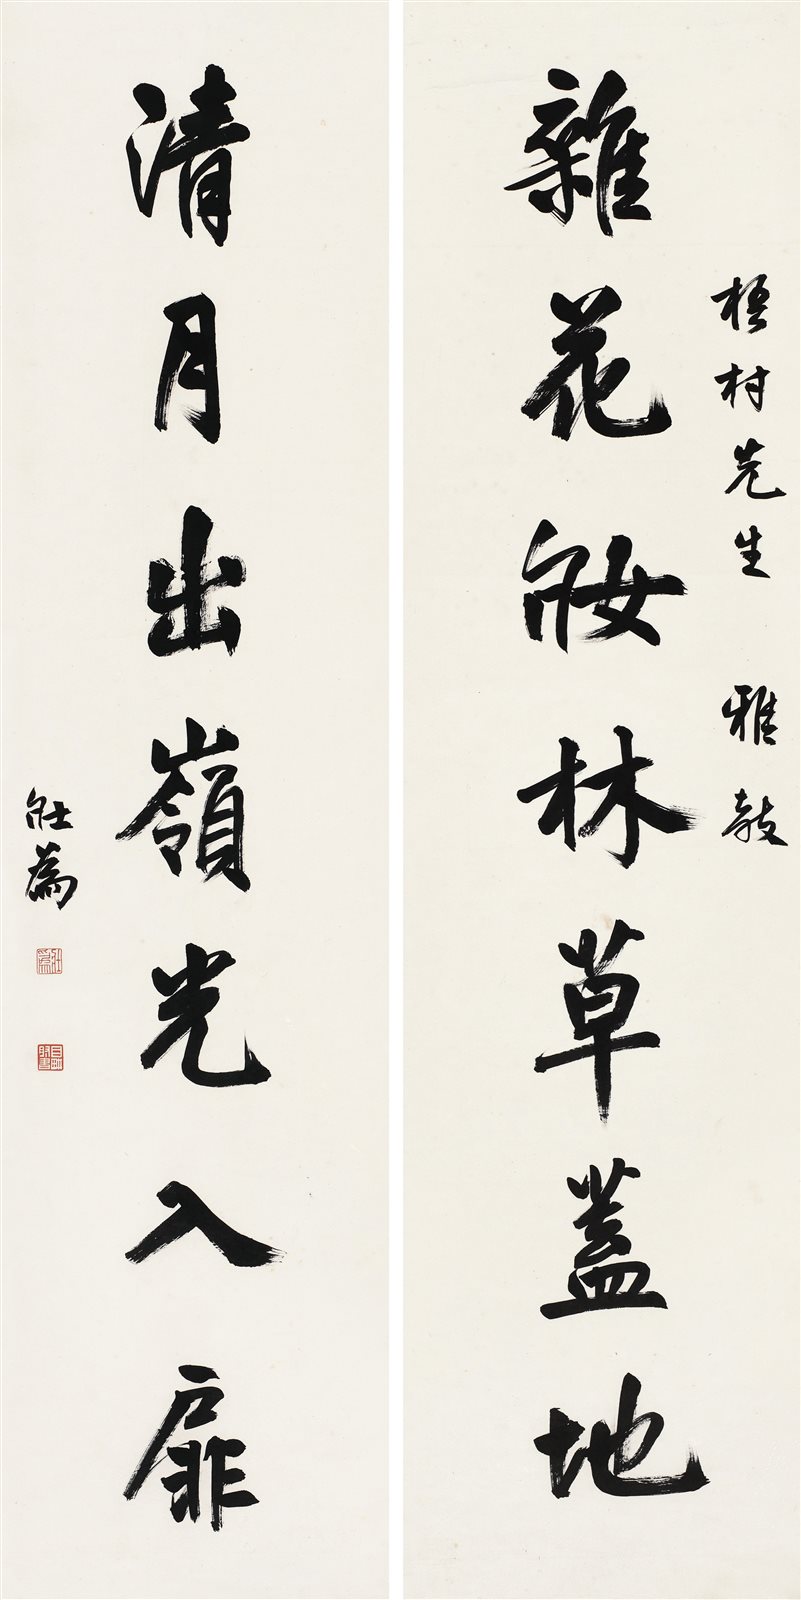 梧村先生 雅教
雜花妝林草蓋地
清月出嶺光入扉
壯為